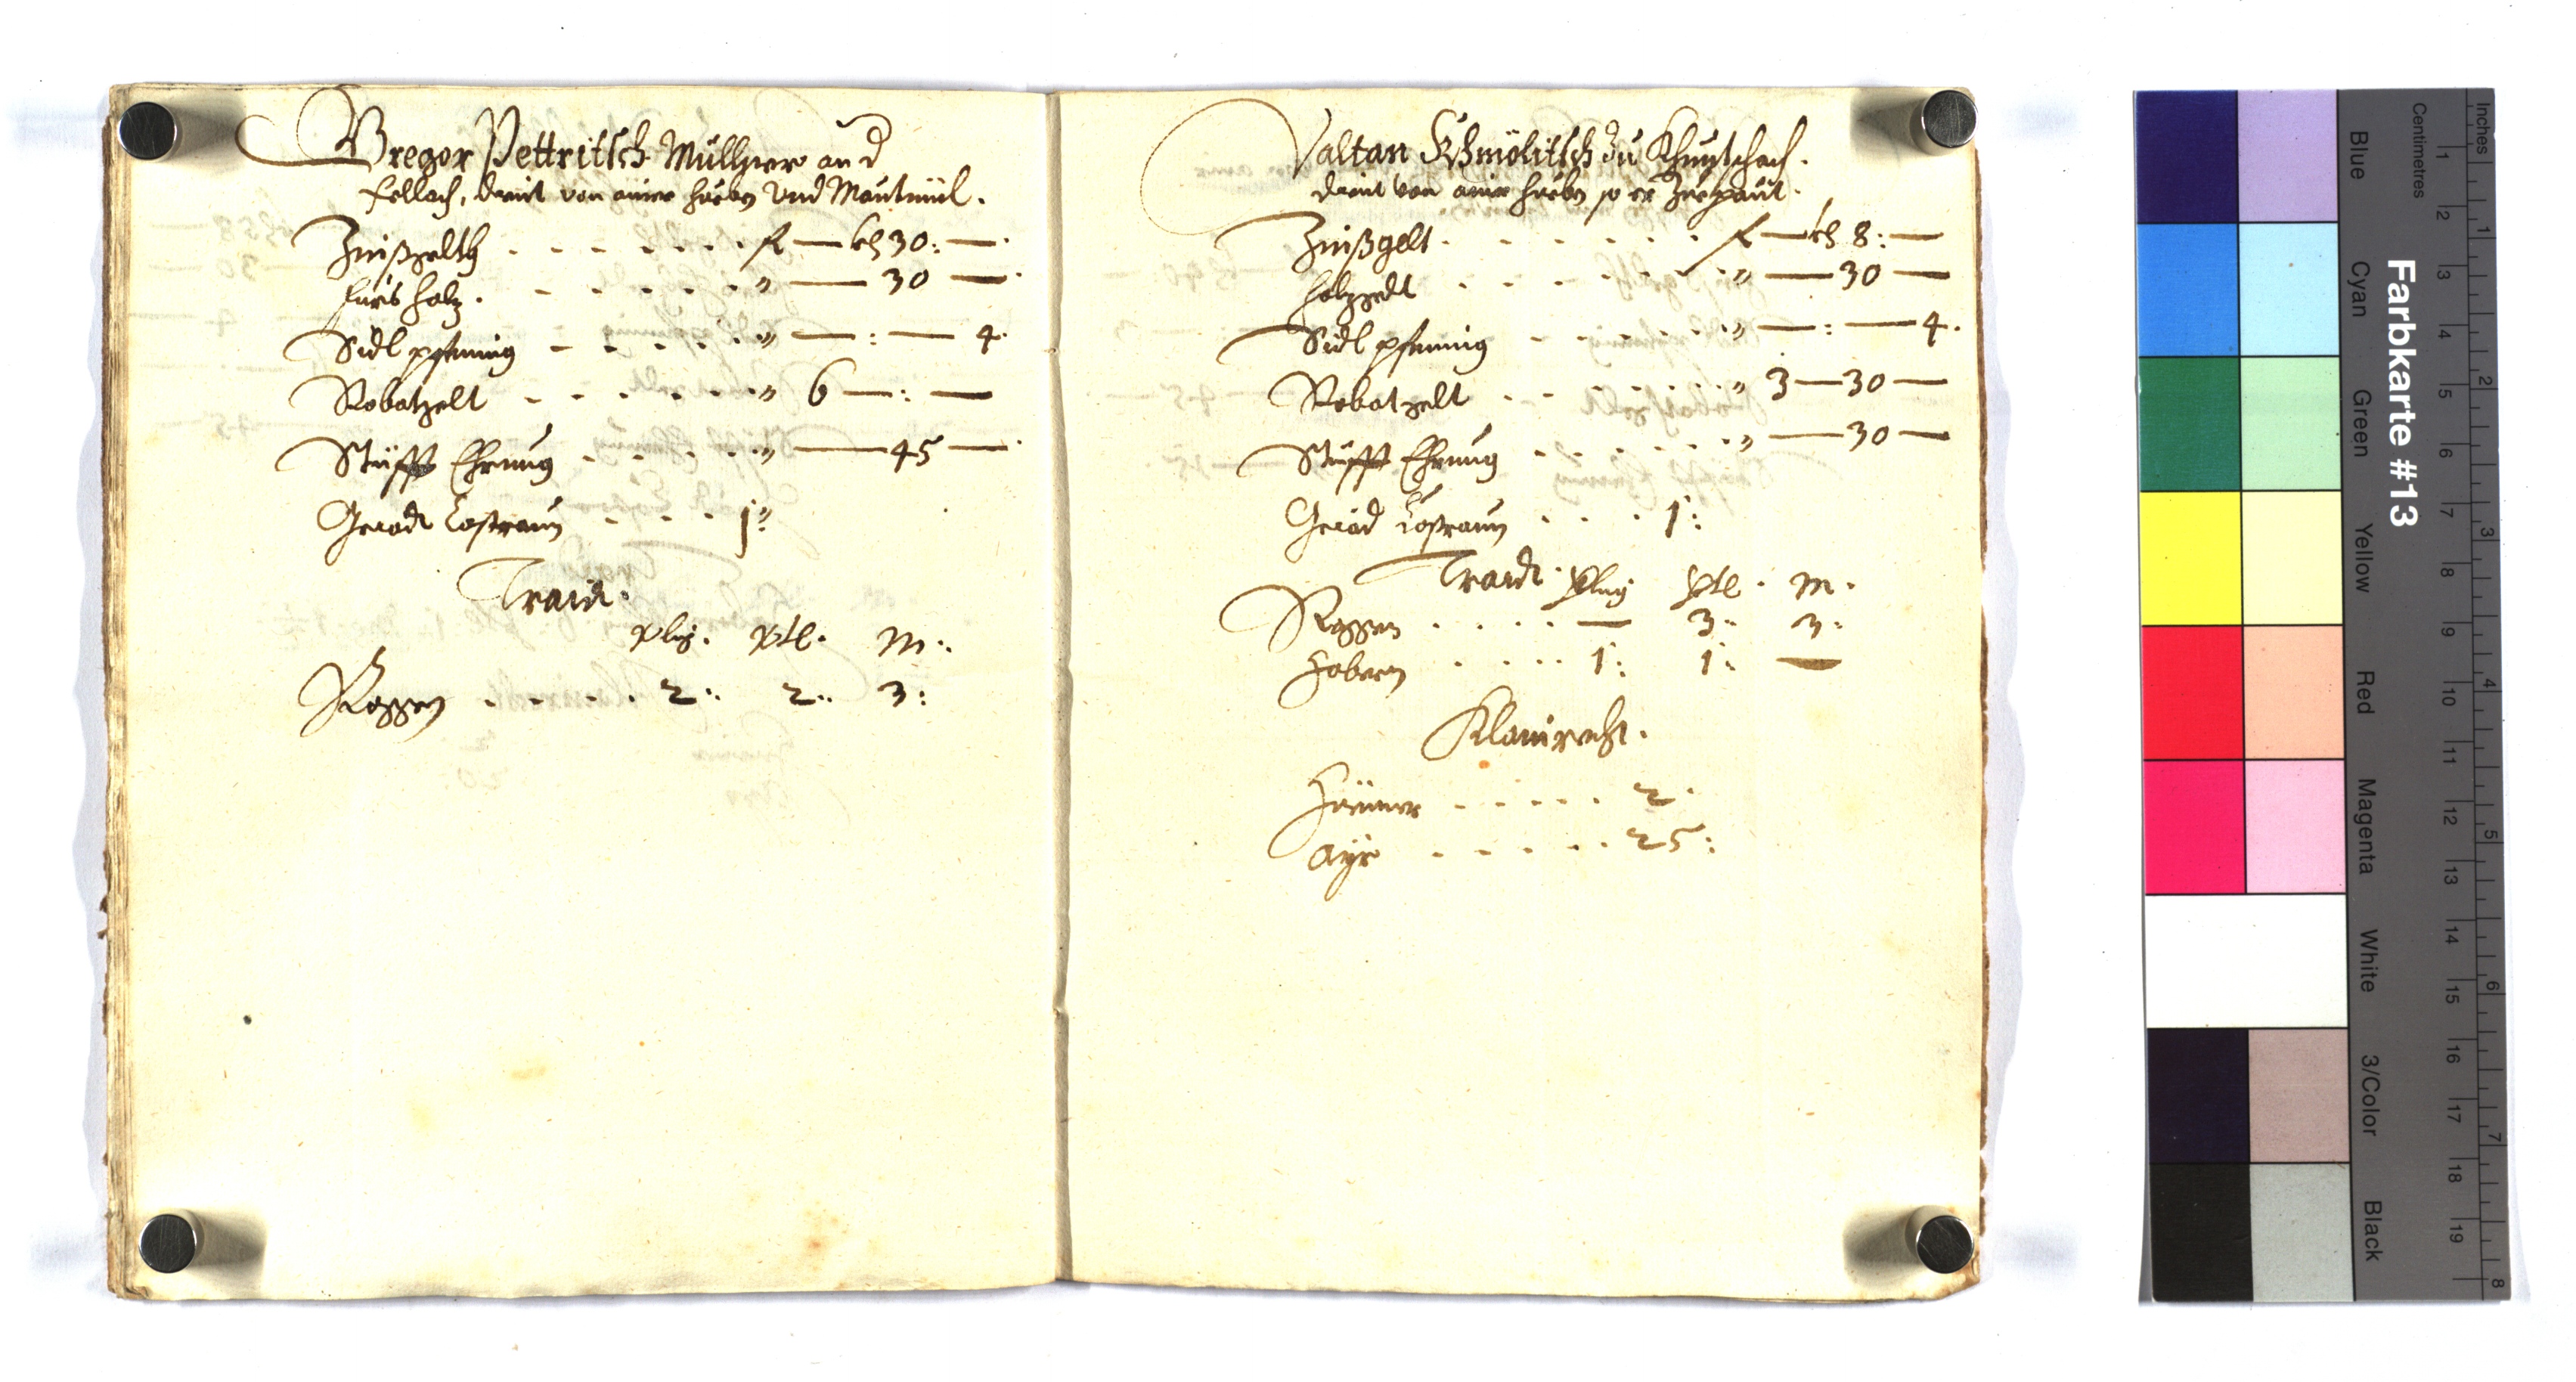 Gregor Pettritsch Müllner an d
Fellach, dient von ainer hueben und Mautmül.
Zinßgelth . . . . . . . f — kh 30 : —
fürs holz . . . . . . . " — 30 —
Sidl pfening . . . . . . " — : — 4.
Robatgelt . . . . . . " 6 — : —
Stüfft Ehrung . . . . . " — 45 —
Gerade Costraun . . . . 1 "
Traidt.
plig. vtl. M:
Roggen . . . . . 2 : 2 : 3 :
Valtan Khmölitsch zu Khuntschach.
dient von ainer hueben so er Zuepaut.
Zinßgelt . . . . . . . f — kh 8 : —
holzgelt . . . . . . . " — 30 —
Sidl pfening . . . . . . " — : — 4.
Robatgelt . . . . . . " 3 — 30 —
Stüfft Ehrung . . . . . " — 30 —
Gerad Costraun . . . . 1 :
Traidt. plig vtl. M.
Roggen . . . . — 3 : 3 :
Habern . . . . 1 : 1 : —
Klainrecht.
Hüener . . . . . 2.
Ayr . . . . . 25 :
Farbkarte #13
Blue
Cyan
Green
Yellow
Red
Magenta
White
3/Color
Black
Centimetres
1
2
3
4
5
6
7
8
9
10
11
12
13
14
15
16
17
18
19
Inches
1
2
3
4
5
6
7
8